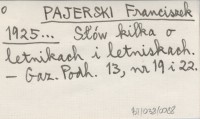 PAJERSKI Franciszek
1925... Słów kilka o
letnikach i letniskach.
– Gaz. Podh. 13, nr 19 i 22.